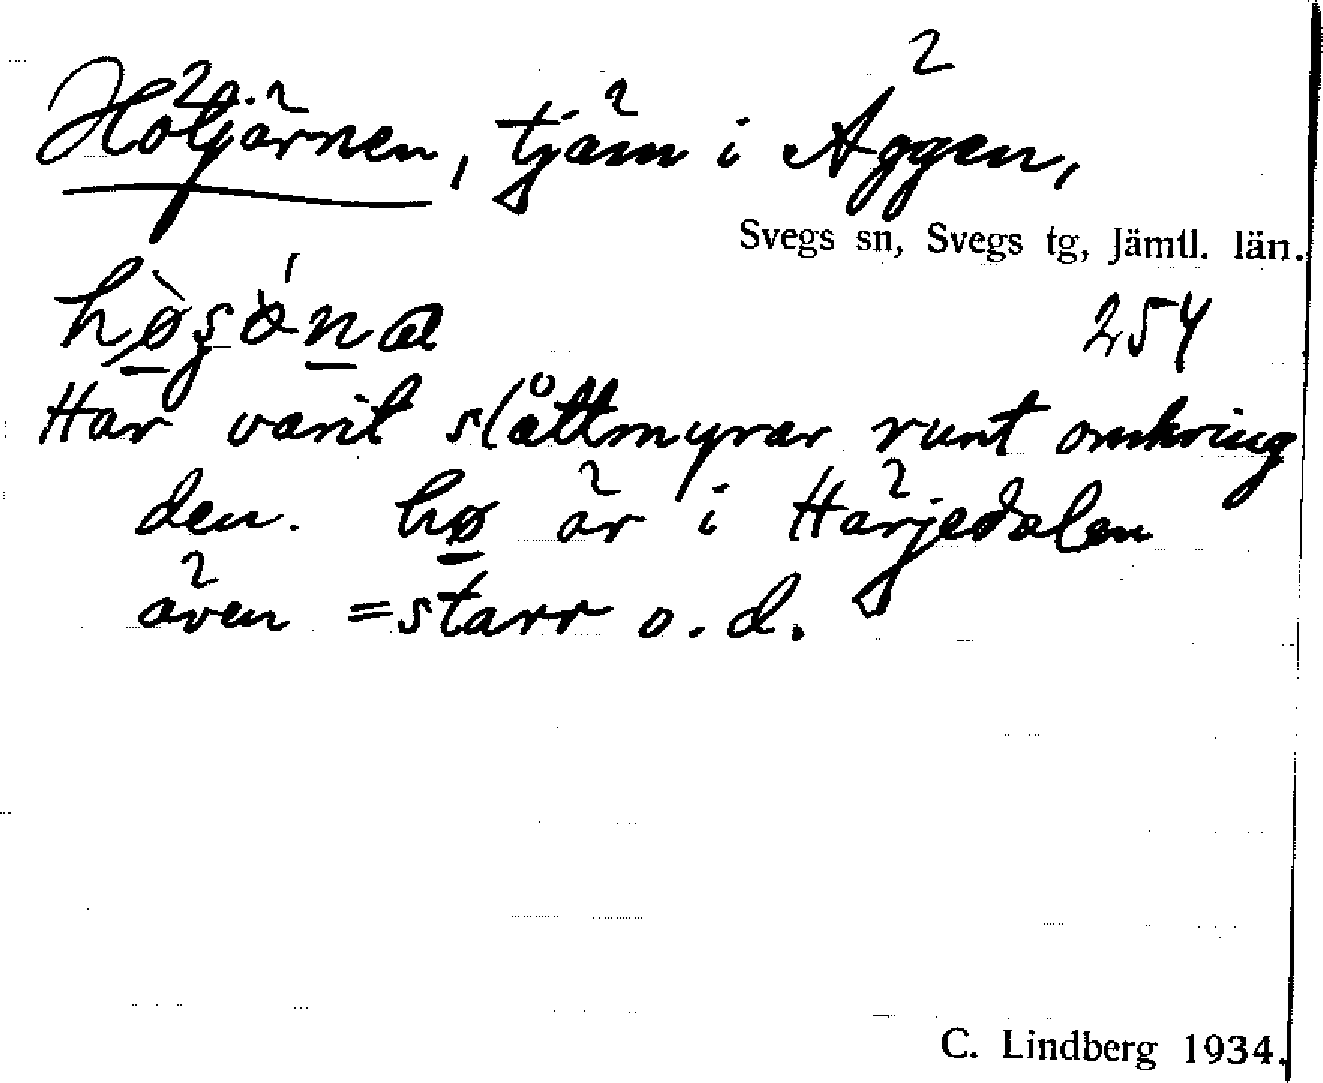 Hötjärnen, tjärn i Äggen,
Svegs sn, Svegs tg, Jämtl. län.
254
Har varit slåttmyrar runt omkring
den. hø är i Härjedalen
även = starr o.d.
C. Lindberg 1934.